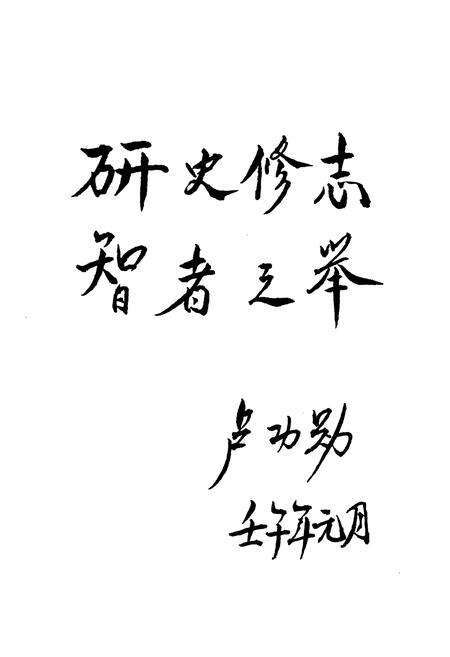 研史修志
智者之举
卢功勋
壬午年元月